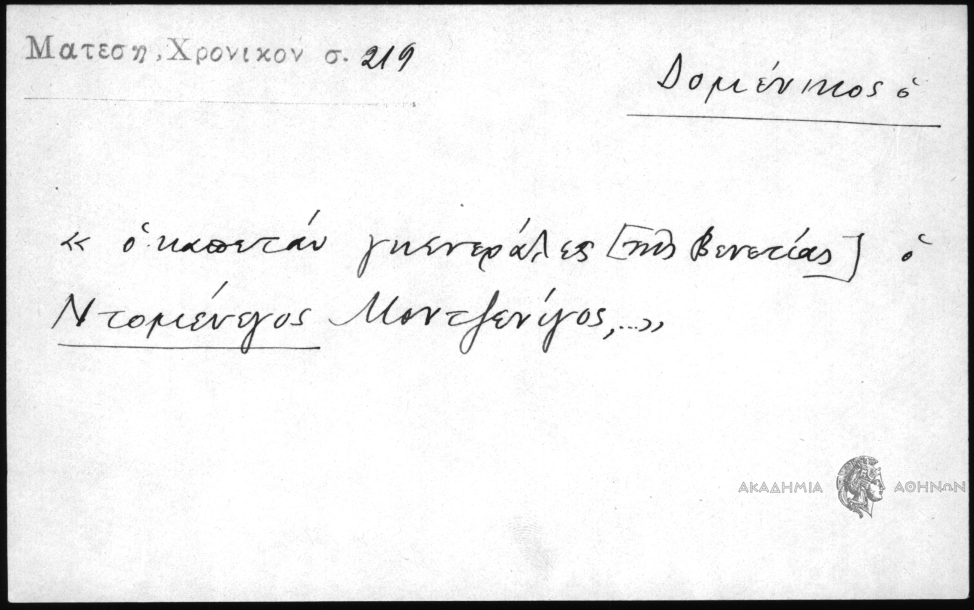 Ματεση, Χρονικον σ. 219
Δομένικος ὁ
« ὁ καπετάν γκενεράλες [τῆς Βενετίας] ὁ
Ντομένεγος Μοντζενίγος,...»
ΑΚΑΔΗΜΙΑ ΑΘΗΝΩΝ